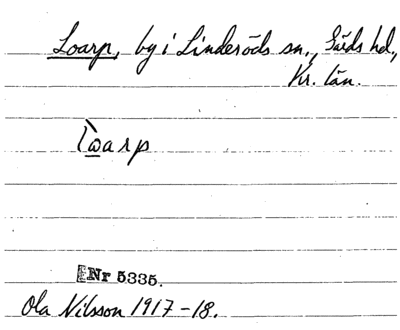 Loarp, by i Linderöds sn., Gärds hd.,
Kr. län.
l̀ω̲arp
Nr 5335.
Ola Nilsson 1917-18.